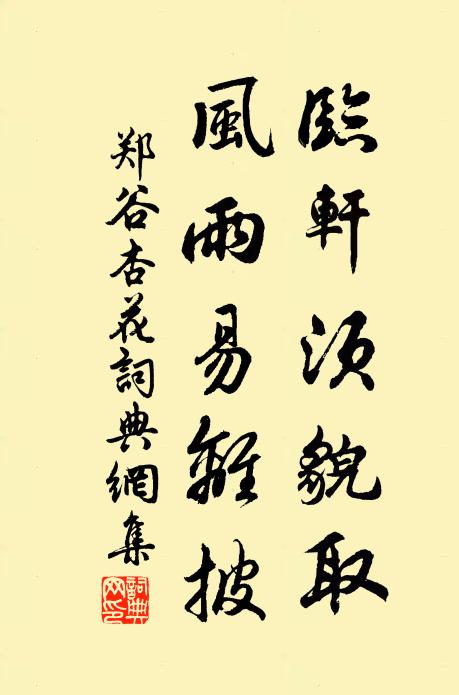 臨軒須貌取
風雨易離披
郑谷杏花詞典網集
詞典网印